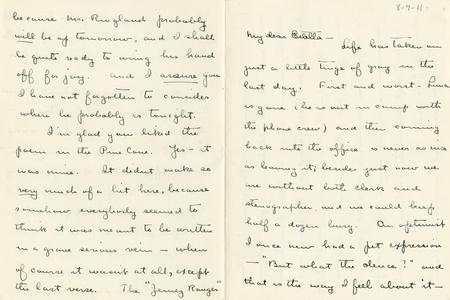 because Mr. Ringland probably
will be up tomorrow, and I shall
be quite ready to wring his hand
off for joy. And I assure you
I have not forgotten to consider
where he probably is tonight.
I'm glad you liked the
poem in the Pine Cone. Yes - it
was mine. It didn't make so
very much of a hit here, because
somehow everybody seemed to
think it was meant to be written
in a grave serious vein - when
of course it wasn't at all, except
the last verse. The "Ranger"
8-7-11
My dear
- Life has taken on
just a little tinge of gray in the
last day. First and worst -
is gone (he is out in camp with
the phone crew) and then coming
back into the office is never as nice
as leaving it; besides just now we
are without both clerk and
stenographer, and we could keep
half a dozen busy. An optimist
I once knew had a pet expression
- "But what the deuce?" and
that is the way I feel about it -